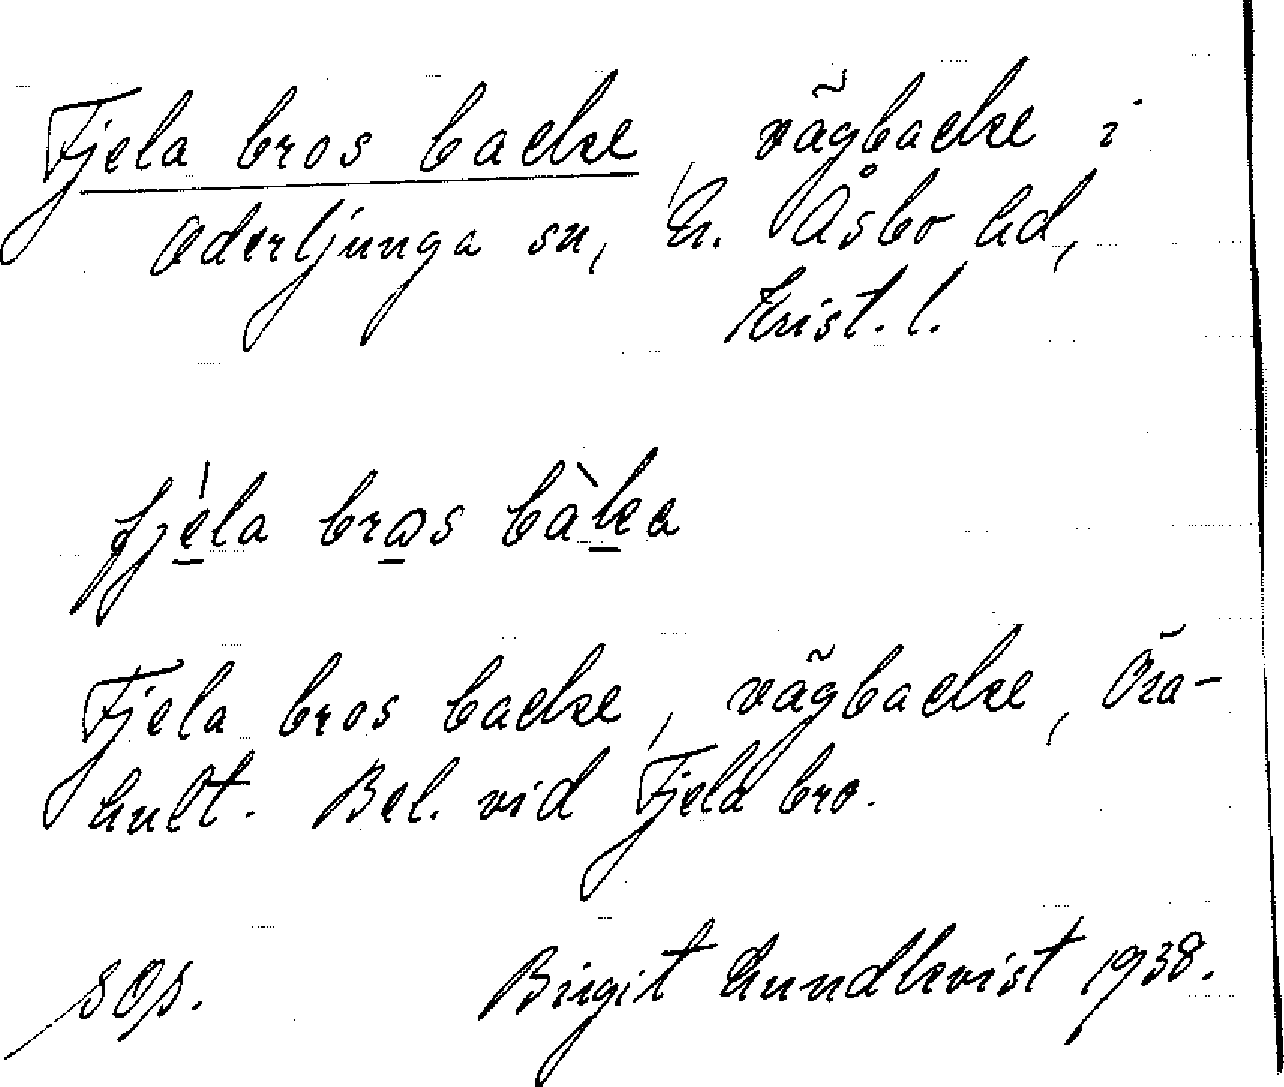 Fjela bros backe, vägbacke i
Oderljunga sn, N. Åsbo hd,
Krist. l.
fjela brɷs bàka
Fjela bros backe, vägbacke, Öra-
hult. Bel. vid Fjela bro.
Birgit Lundkvist 1938.